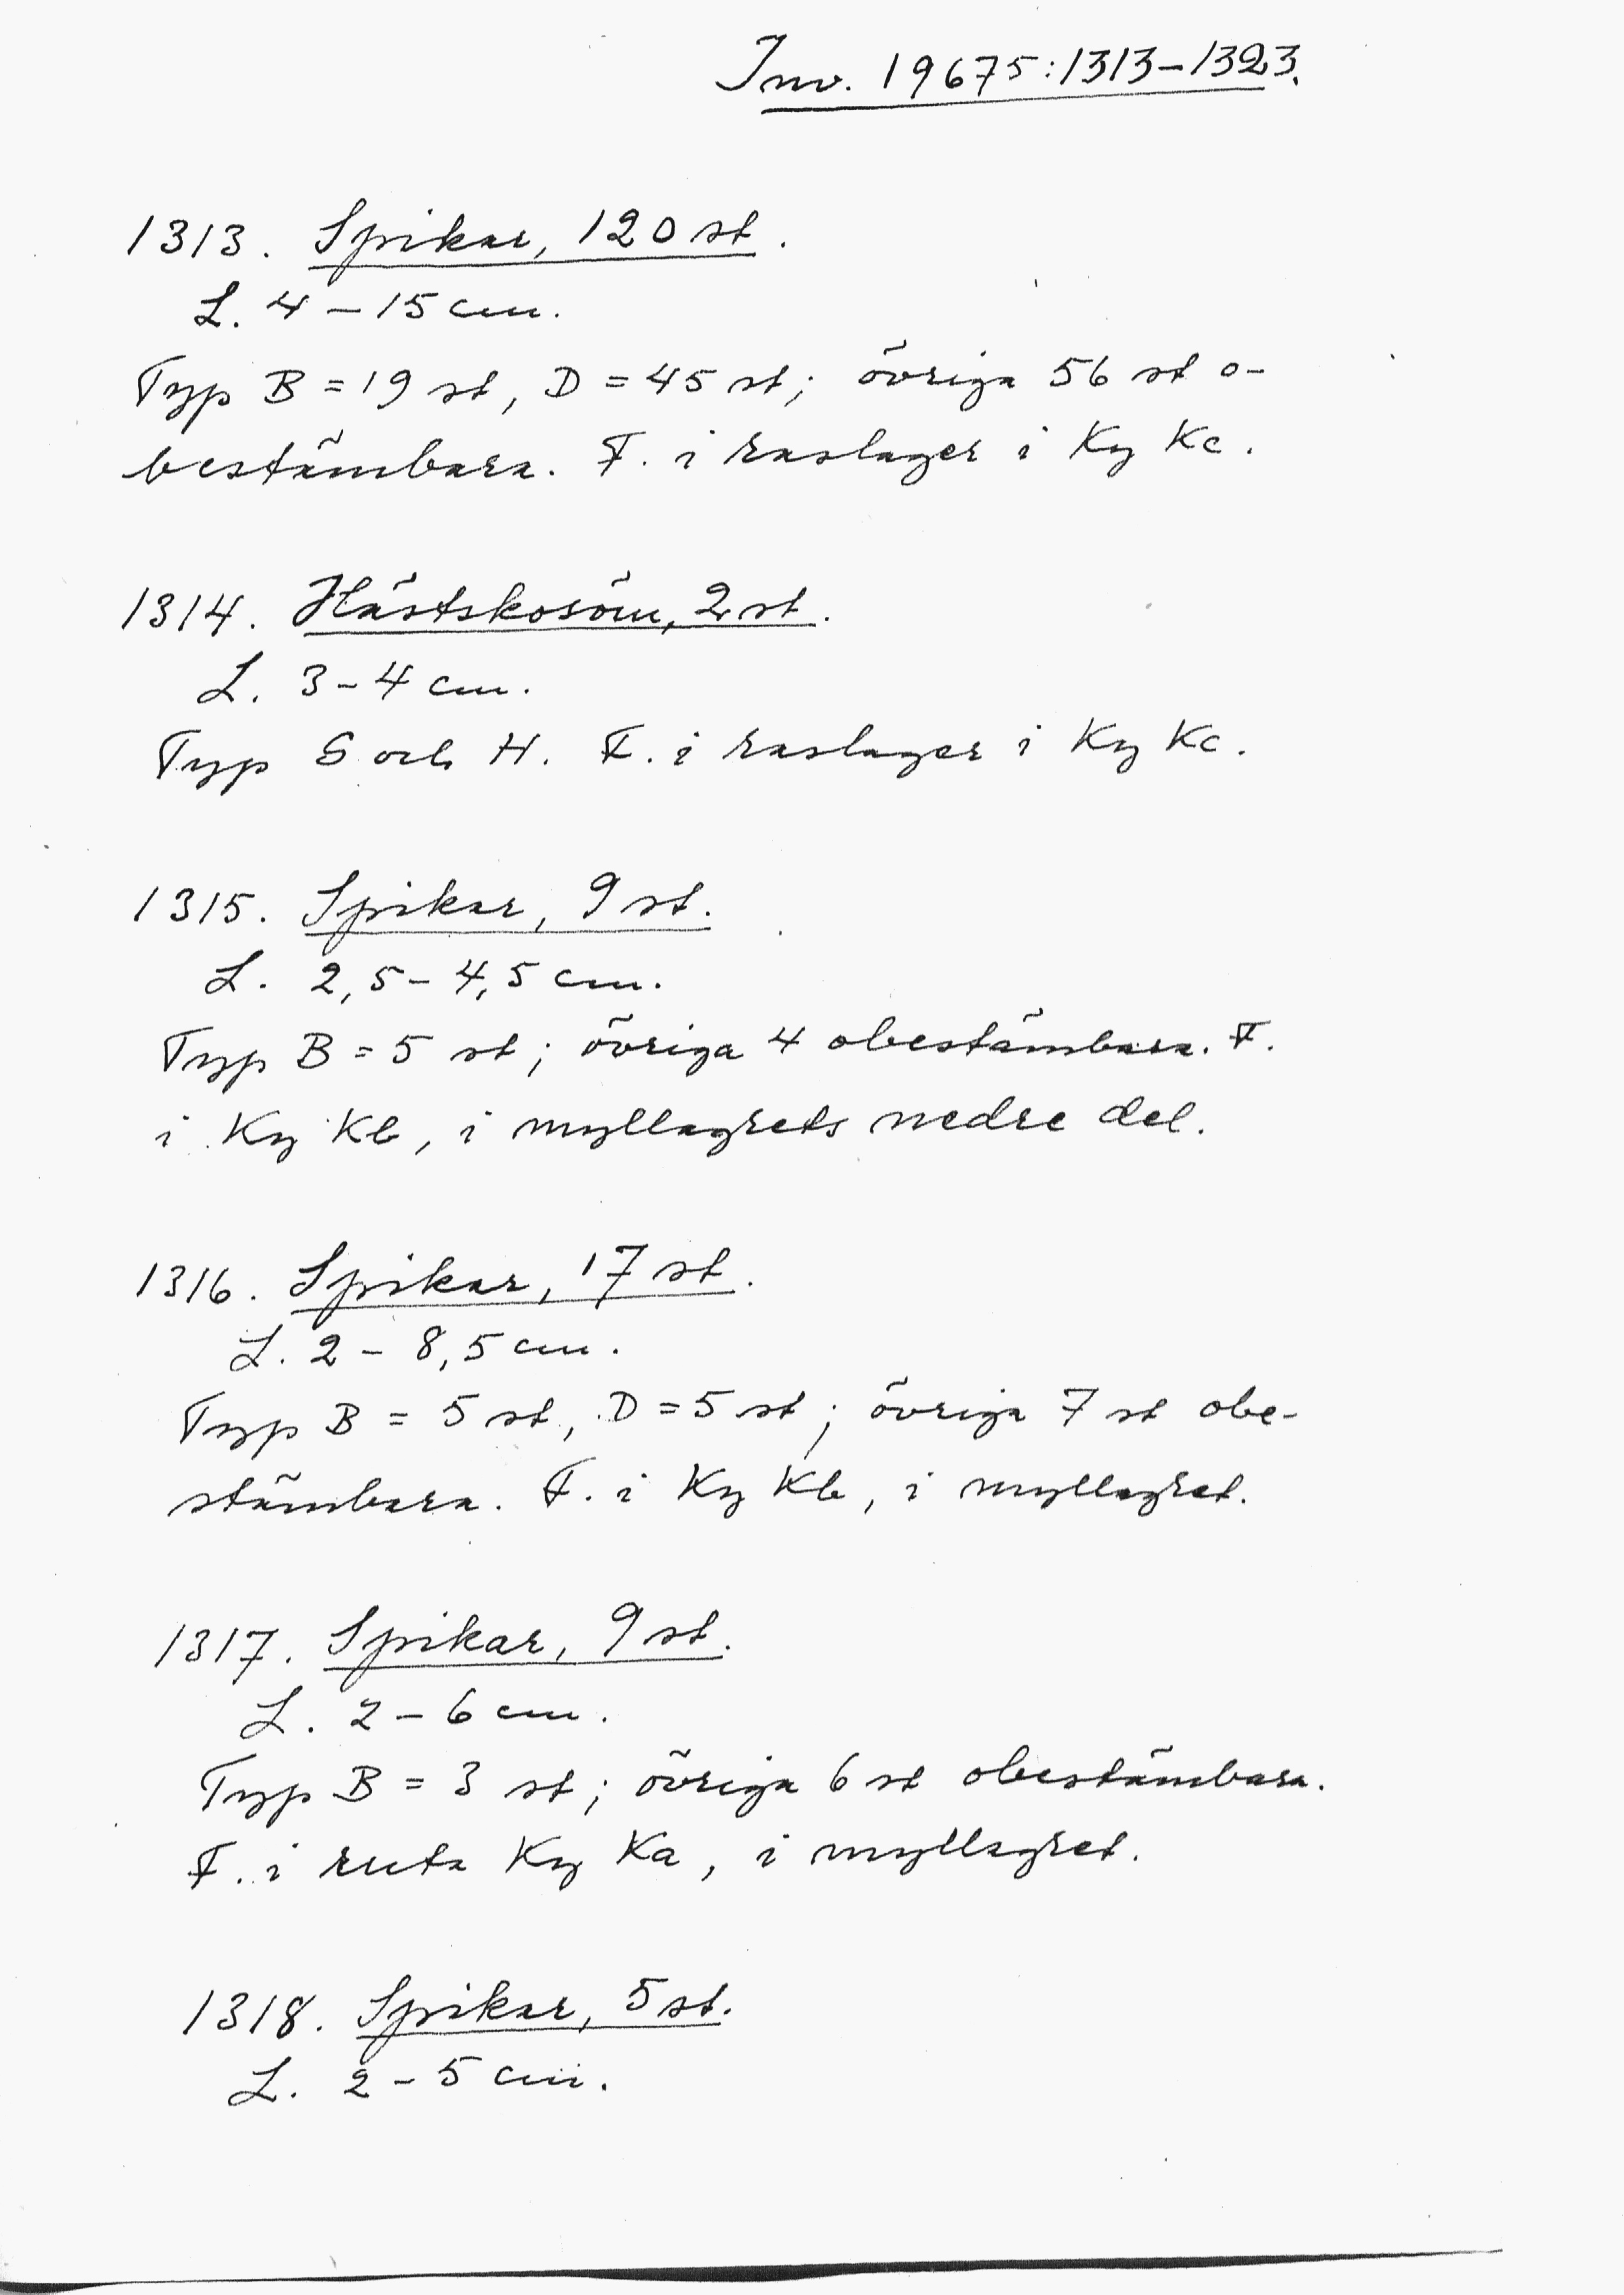 Inv. 19675:1313-1323.
1313. Spikar, 120 st.
L. 4 - 15 cm.
Typ B = 19 st, D = 45 st; övriga 56 st o-
bestämbara. F. i raslager i Ky Kc.
1314. Hästskosöm, 2 st.
L. 3-4 cm.
Typ G och H. F. i raslager i Ky Kc.
1315. Spikar, 9 st.
L. 2,5-4,5 cm.
Typ B = 5 st; övriga 4 obestämbara. F.
i Ky Kb, i myllagrets nedre del.
1316. Spikar, 17 st.
L. 2 - 8,5 cm.
Typ B = 5 st, D = 5 st; övriga 7 st obe-
stämbara. F. i Ky Kb, i myllagret.
1317. Spikar, 9 st.
L. 2 - 6 cm.
Typ B = 3 st; övriga 6 st obestämbara.
F. i ruta Ky Ka, i myllagret.
1318. Spikar, 5 st.
L. 2 - 5 cm.